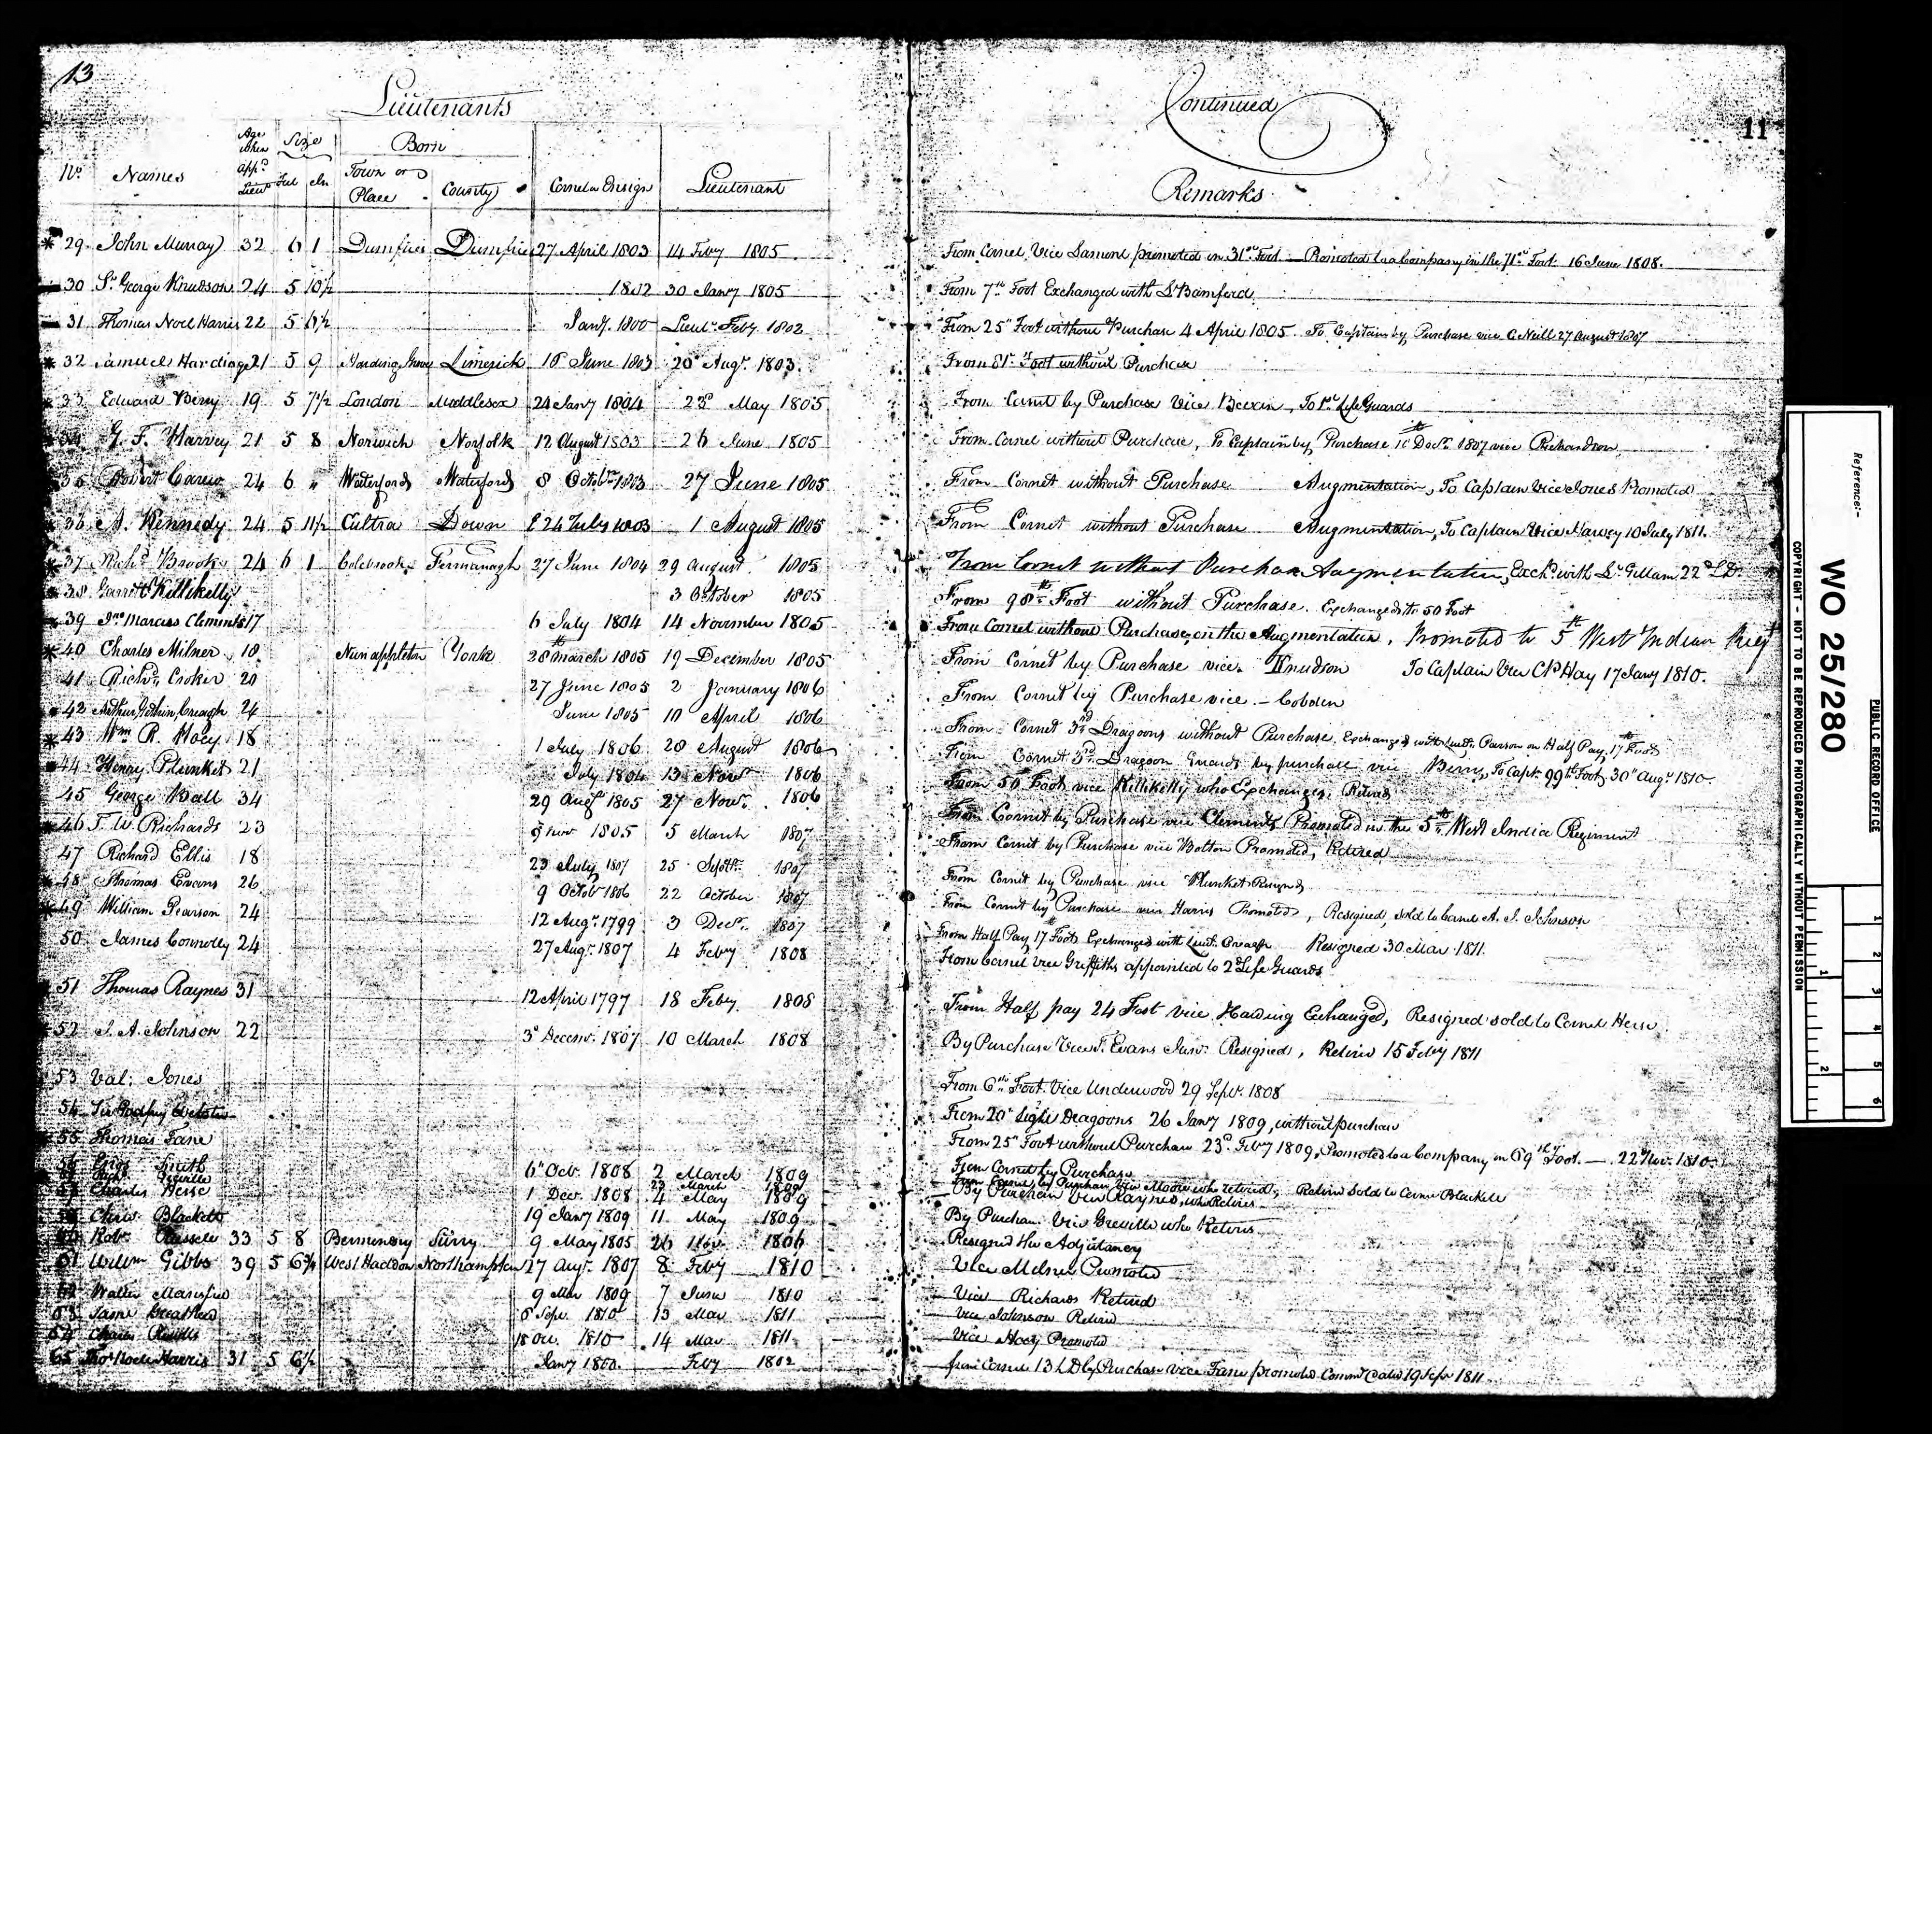 13
Lieutenants
Continued
11
No. Names Age when app.d Lieut Size Feet In Born Town or Place County Cornet or Ensign Lieutenant
Remarks
29 John Murray 32 6 1 Dumfries Dumfries 27 April 1803 14 Feby 1805 From Cornet Vice Lamont promoted in 31st Foot — Promoted to a Company in the 71st Foot 16 June 1808.
30 St. George Knudson 24 5 10½ 1802 30 Jany 1805 From 7th Foot Exchanged with Lt Bamford
31 Thomas Noel Harris 22 5 6½ Jany. 1800 Lieut. Feby 1802 From 25th Foot without Purchase 4 April 1805 To Captain by Purchase vice O'Neill 27 August 1807
32 Samuel Harding 21 5 9 Harding Grove Limerick 18 June 1803 20 Augt. 1803. From 81st Foot without Purchase
33 Edward Berry 19 5 7½ London Middlesex 24 Jany 1804 23d May 1805 From Cornet by Purchase Vice Bevan, To 1st Life Guards
34 G. F. Harvey 21 5 8 Norwich Norfolk 12 August 1803 26 June 1805 From Cornet without Purchase, To Captain by Purchase 10th Decr. 1807 vice Richardson
35 Robert Carew 24 6 " Waterford Waterford 8 Octobr 1803 27 June 1805 From Cornet without Purchase Augmentation, To Captain Vice Jones Promoted
36 A. Kennedy 24 5 11½ Cultra Down 24 July 1803 1 August 1805 From Cornet without Purchase Augmentation, To Captain Vice Harvey 10 July 1811.
37 Richd Brooke 24 6 1 Colebrooke Fermanagh 27 June 1804 29 August 1805 From Cornet without Purchase Augmentation, Exchd. with Lt. Gillam 22d L.D.
38 Garrett Killikelly 3 October 1805 From 98th Foot without Purchase. Exchanged to 50 Foot
39 Jno Marcus Clements 17 6 July 1804 14 November 1805 From Cornet without Purchase, on the Augmentation. Promoted to 5th West Indian Regt
40 Charles Milner 18 Nunappleton York 28th March 1805 19 December 1805 From Cornet by Purchase vice Knudson To Captain Vice Hay 17 Jany 1810.
41 Richd. Croker 20 27 June 1805 2 January 1806 From Cornet by Purchase vice — Cobden
42 Arthur Gethin Creagh 24 June 1805 10 April 1806 From Cornet 3rd Dragoons without Purchase. Exchanged with Lieut. Pearson on Half Pay, 17th Foot
43 Wm R. Hoey 18 1 July 1806 28 August 1806 From Cornet 3rd Dragoon Guards by purchase vice Berry, To Capt. 99th Foot, 30th Augt. 1810.
44 Henry Plunket 21 July 1804 13 Novr 1806 From 50 Foot, vice Killikelly who Exchanges. Retired
45 George Ball 34 29 Augt 1805 27 Novr. 1806 From Cornet by Purchase vice Clements Promoted in the 5th West India Regiment
46 T. W. Richards 23 5 Novr 1805 5 March 1807 From Cornet by Purchase vice Bolton Promoted, Retired
47 Richard Ellis 18 23 July 1807 25 Septr. 1807 From Cornet by Purchase vice Plunket Resigned
48 Thomas Evans 26 9 Octobr 1806 22 October 1807 From Cornet by Purchase vice Harris Promoted, Resigned, sold to Cornet A. J. Johnson
49 William Pearson 24 12 Augt. 1799 3 Decr. 1807 From Half Pay 17th Foot Exchanged with Lieut. Creagh Resigned 30 Mar 1811.
50 James Connolly 24 27 Augt. 1807 4 Feby 1808 From Cornet vice Griffiths appointed to 2d Life Guards
51 Thomas Raynes 31 12 April 1797 18 Feby 1808 From Half pay 24 Foot vice Harding Exchanged, Resigned sold to Cornet Hesse
52 J. A. Johnson 22 3d Decemr. 1807 10 March 1808 By Purchase Vice T. Evans Junr. Resigned, Retired 15 Feby 1811
53 Val: Jones From 6th Foot Vice Underwood 29 Septr. 1808
54 Sir Godfrey Webster From 20th Light Dragoons 26 Jany 1809, without purchase
55 Thomas Fane From 25th Foot without Purchase 23d Feby 1809, Promoted to a Company in 69th Foot. — 22 Novr. 1810
56 Smith 6th Octr. 1808 2 March 1809 From Cornet by Purchase
Greville 23 March 1809 From Cornet by Purchase Vice Moore who retired, Retired Sold to Cornet Blackett
Charles Hesse 1 Decr. 1808 4 May 1809 By Purchase Vice Raynes, who Retires
Chrisr. Blackett 19 Jany 1809 11 May 1809 By Purchase Vice Greville who Retires
60 Robt. Russell 33 5 8 Bermondsey Surry 9 May 1805 26 Novr 1806 Resigned the Adjutancy
61 Willm Gibbs 39 5 6¾ West Haddon Northampton 27 Augt. 1807 8 Feby 1810 Vice Milner Promoted
62 Walter Mansfield 9 Mar 1809 7 June 1810 Vice Richards Retired
63 Greathead 6 Sepr. 1810 13 Mar 1811 vice Johnson Retired
64 Charles 18 Oct. 1810 14 Mar 1811 Vice Hoey Promoted
65 Thos Noel Harris 31 5 6½ Jany 1800. Feby 1802 from Cornet 13 L.D by Purchase vice Fane promoted Commn dated 19 Sepr 1811
Reference:-
PUBLIC RECORD OFFICE
WO 25/280
COPYRIGHT - NOT TO BE REPRODUCED PHOTOGRAPHICALLY WITHOUT PERMISSION
1 2 3 4 5 6
1 2